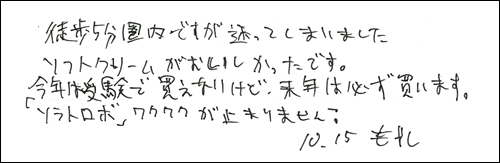 徒歩5分圏内ですが迷ってしまいました
ソフトクリームがおいしかったです。
今年は受験で買えないけど、来年は必ず買います。
「ソラトロボ」ワクワクが止まりません!
10.15 もれ